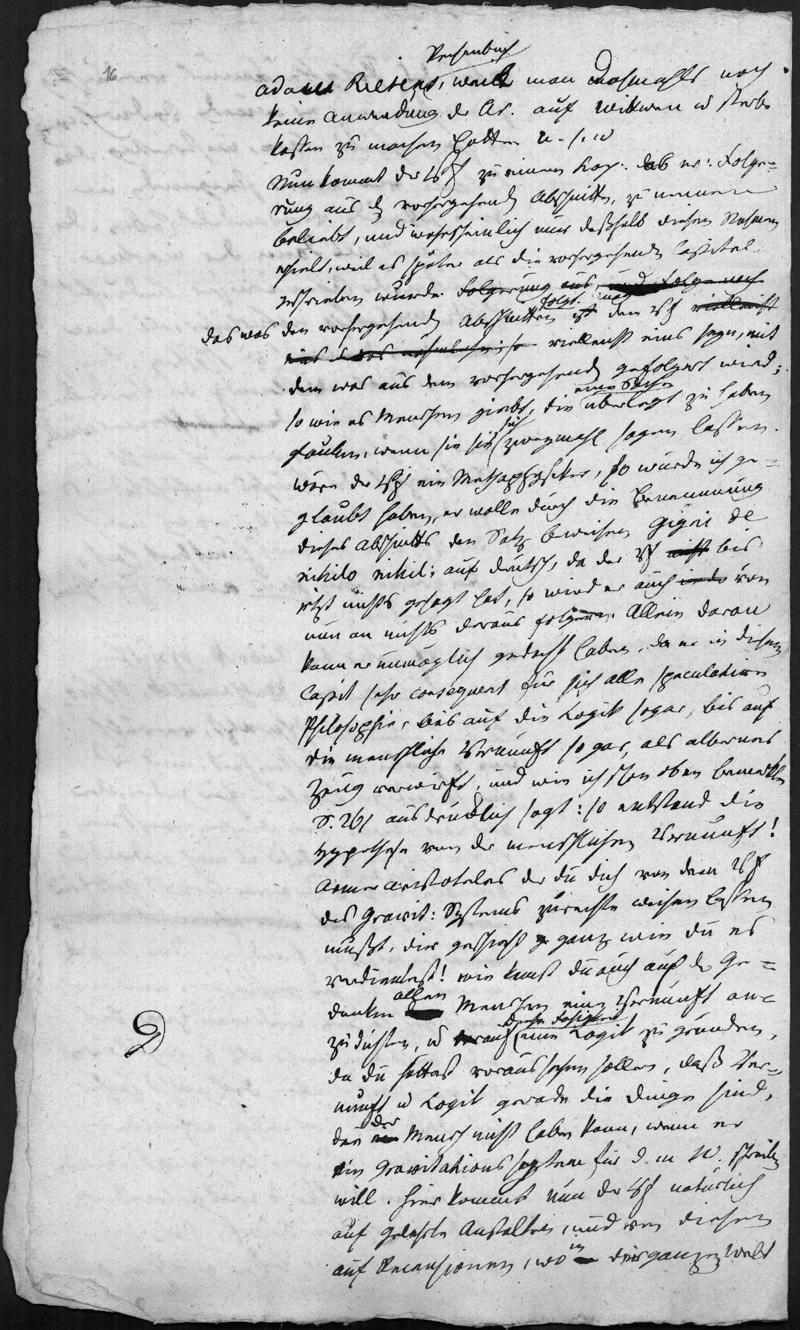 16
Rechenbuch
adam Riesens, weil man dasmahls noch
keine Anwendung der Ar. auf Wittwen u sterbe
kassen zu machen hatte u. s. w
Nun kommt der Vf zu einem Kap: das er: Folge-
rung aus d vorhergehend Abschnitte, zu nennen
beliebt, und wahrscheinlich nur deßhalb diesen Nahmen
erhielt, weil es später als die vorhergehenden Capitel
geschrieben wurde. Folgerung aus, und Folge nach
das was den vorhergehend Abschnitten folgt ist dem Vf vielleicht
vielleicht eins seyn, mit
dem was aus dem vorhergehend gefolgert wird;
so wie es Menschen giebt, die eine Sache überlegt zu haben
glauben, wenn sie sich sie zweymahl sagen lassen.
wäre der Vf ein Methaphysiker, so würde ich ge-
glaubt haben, er wolle durch die Benennung
dieses Abschnitts den Satz beweisen gigni de
nihilo nihil; auf deutsch, da der Vf nichts bis
itzt nichts gesagt hat, so wird er auch von
nun an nichts daraus folgern. Allein daran
kann er unmöglich gedacht haben, da er in diesem
Capit sehr consequent für sich alle speculative
Philosophie, bis auf die Logik sogar, bis auf
die menschliche Vernunft sogar, als albernes
Zeug verwirft, und wie ich schon oben bemerkte
S. 261 ausdrücklich sagt: so entstand die
Hypothese von der menschlichen Vernunft!
Armer Aristoteles der du dich von dem Vf
des Gravit: Systems zurechte weisen lassen
mußt, dir geschieht ganz wie du es
verdientest! wie kannst du auch auf den Ge-
danken allen Menschen eine Vernunft an-
zudichten, u darauf diese Fähigkeit eine Logik zu gründen,
da du hättest voraussehen sollen, daß Ver-
nunft u Logik gerade die Dinge sind,
die der Mensch nicht haben kann, wenn er
ein Gravitations system für d. m W. schreiben
will. Hier kommt nun der Vf natürlich
auf gelehrte Anstalten, und von diesen
auf Recensionen, wo in der ganzen Welt